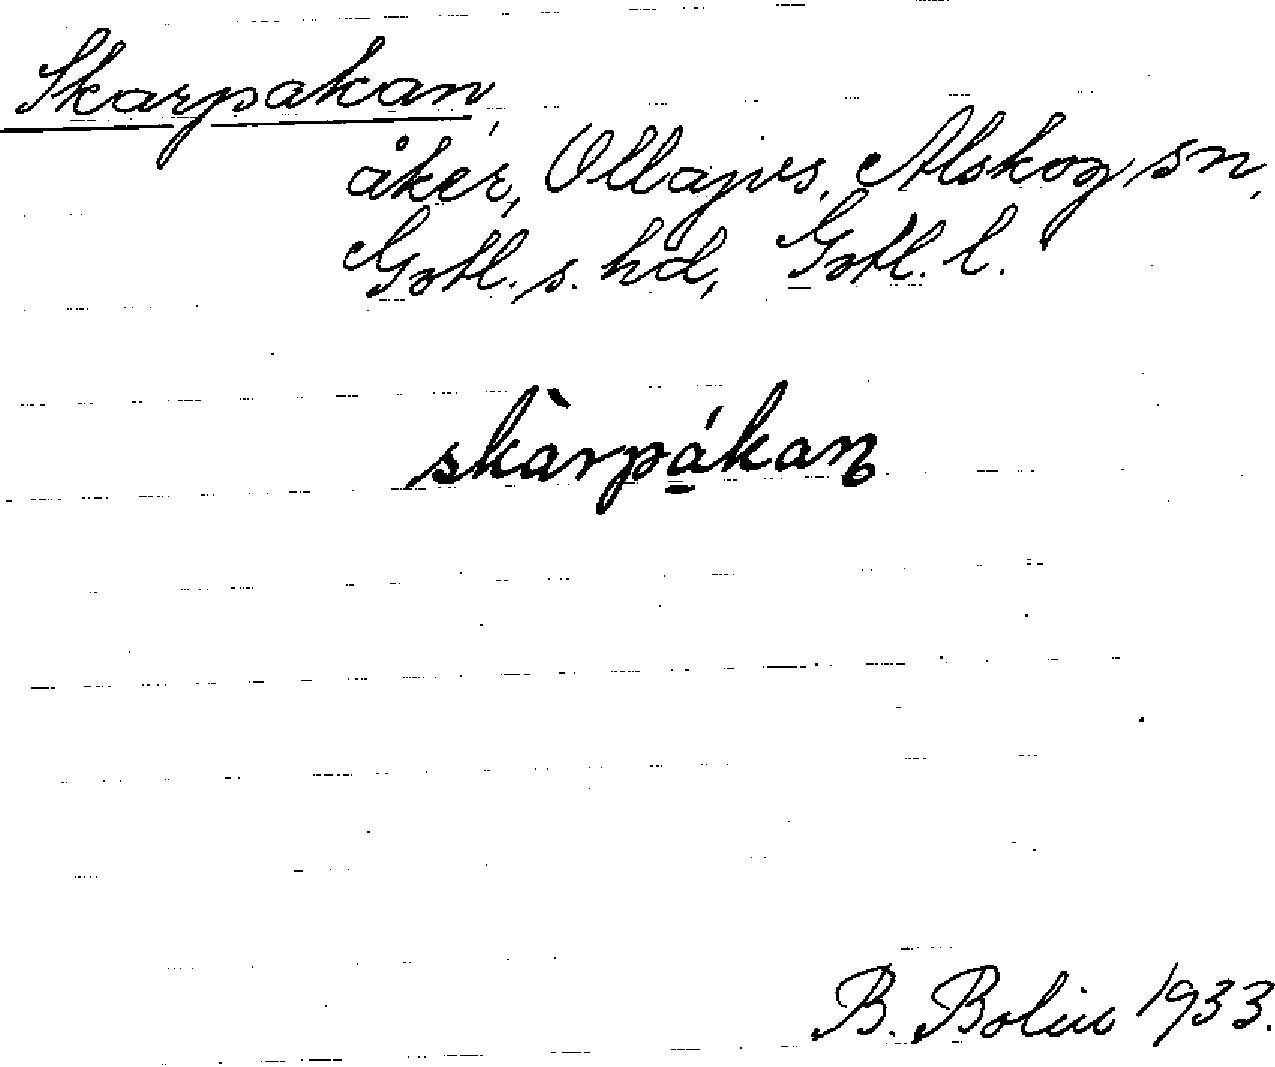 Skarpakan,
åker, Ollajvs, Alskog sn,
Gotl. s. hd, Gotl. l.
skàrpá̱kan
B. Bolin 1933.